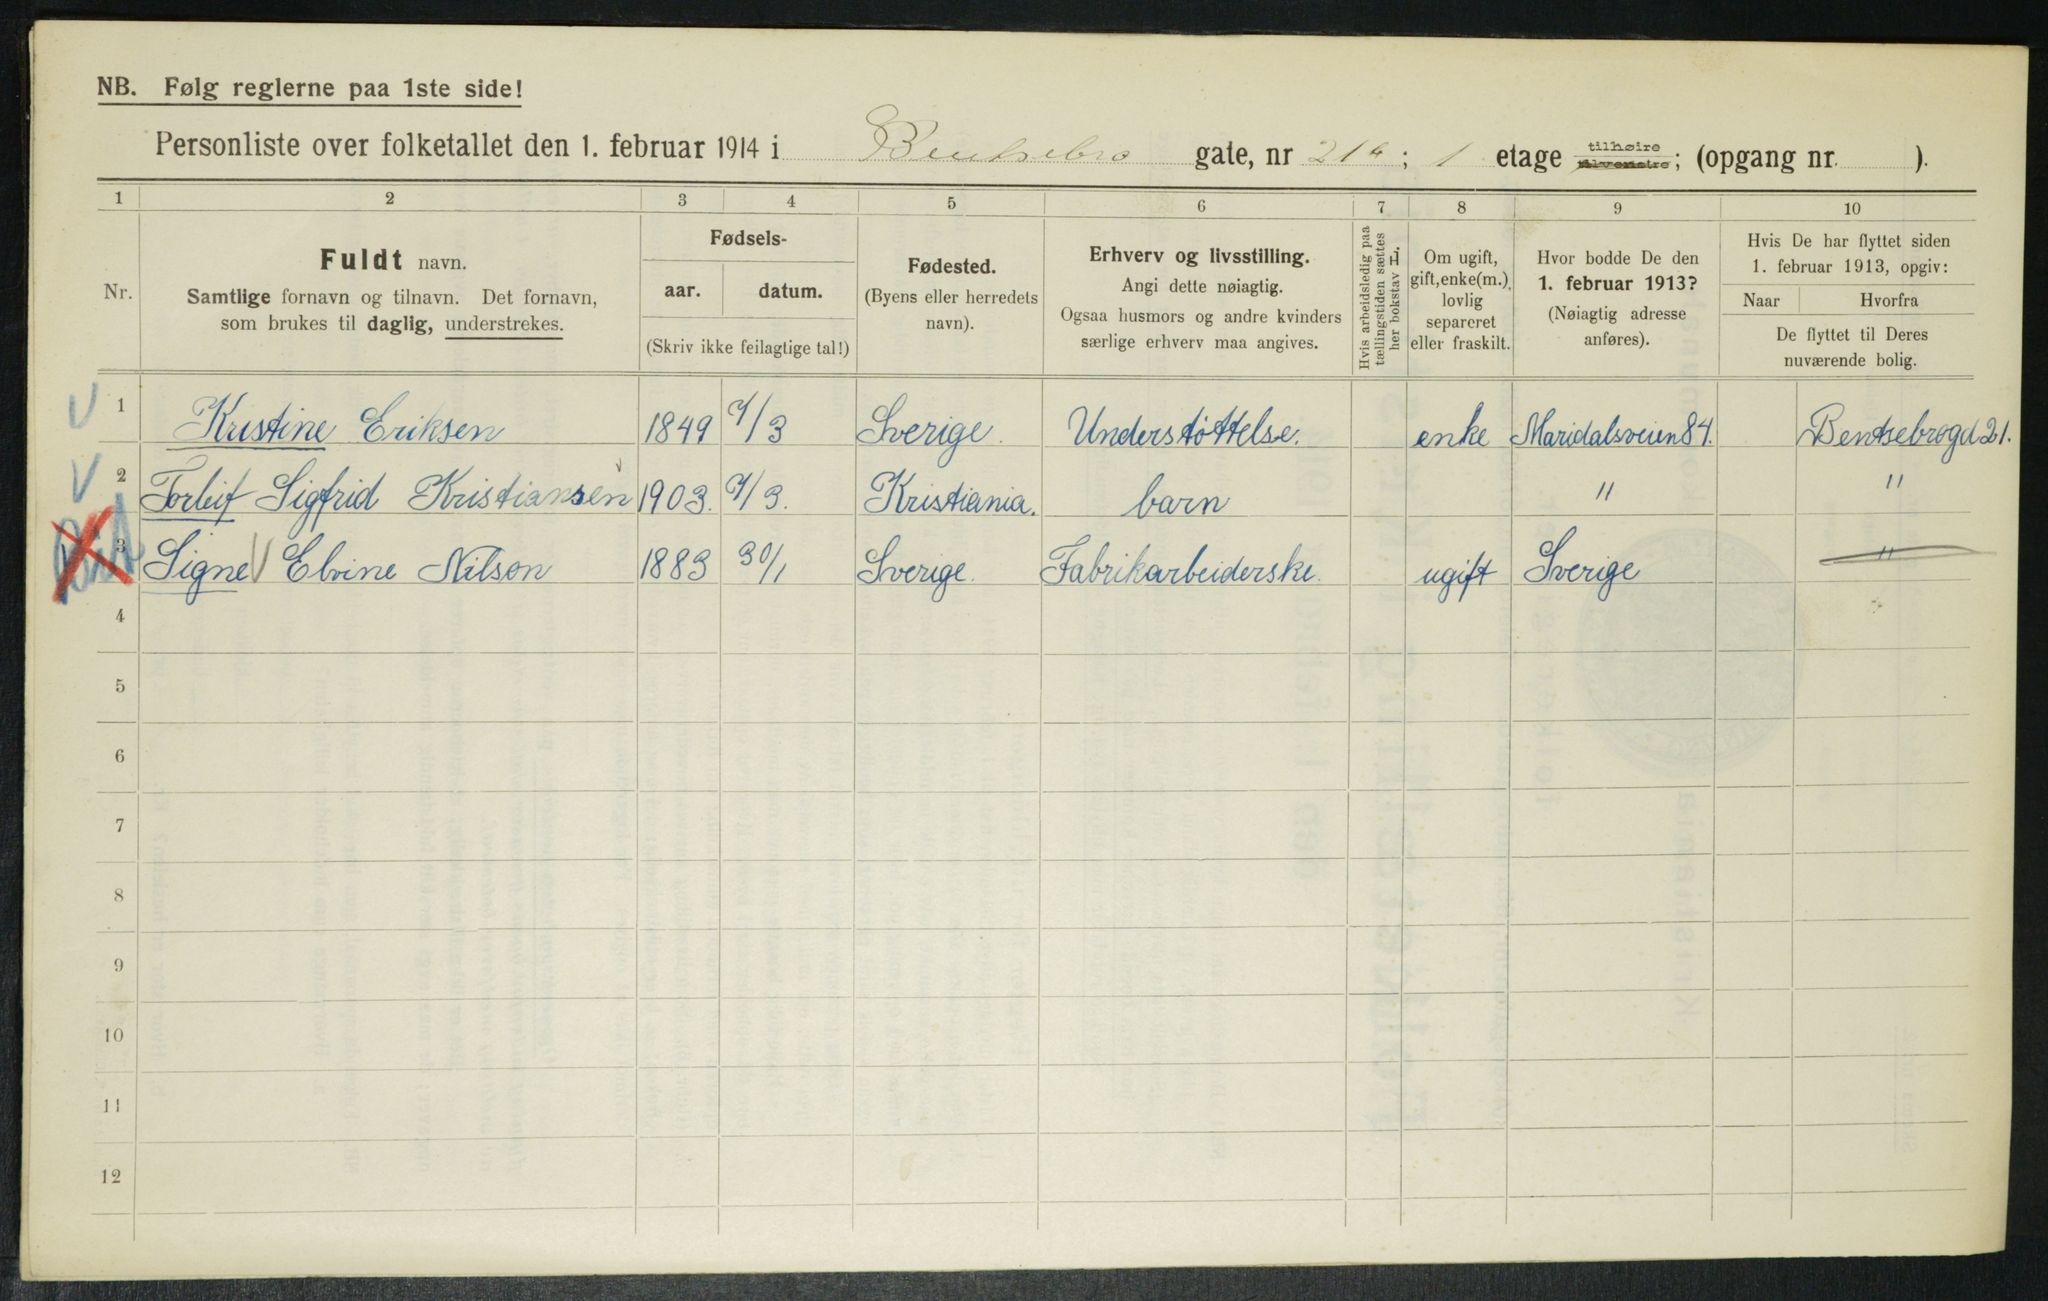 NB. Følg reglerne paa 1ste side!
Personliste over folketallet den 1. februar 1914 i Bentsebro gate, nr 21a; 1 etage tilhøire tilvenstre; (opgang nr. ).
1 2 3 4 5 6 7 8 9 10
Nr.
Fuldt navn.
Samtlige fornavn og tilnavn. Det fornavn,
som brukes til daglig, understrekes.
Fødsels-
aar. datum.
(Skriv ikke feilagtige tal!)
Fødested.
(Byens eller herredets
navn).
Erhverv og livsstilling.
Angi dette nøiagtig.
Ogsaa husmors og andre kvinders
særlige erhverv maa angives.
Hvis arbeidsledig paa
tællingstiden sættes
her bokstav L.
Om ugift,
gift, enke(m.),
lovlig
separeret
eller fraskilt.
Hvor bodde De den
1. februar 1913?
(Nøiagtig adresse
anføres).
Hvis De har flyttet siden
1. februar 1913, opgiv:
Naar Hvorfra
De flyttet til Deres
nuværende bolig.
1 Kristine Eriksen 1849 7/3 Sverige. Understøttelse. enke Maridalsveien 84. Bentsebrogd 21.
2 Torleif Sigfrid Kristiansen 1903. 7/3. Kristiania. barn " "
3 Signe Elvine Nilson 1883 30/1 Sverige. Fabrikarbeiderske. ugift Sverige "
4
5
6
7
8
9
10
11
12